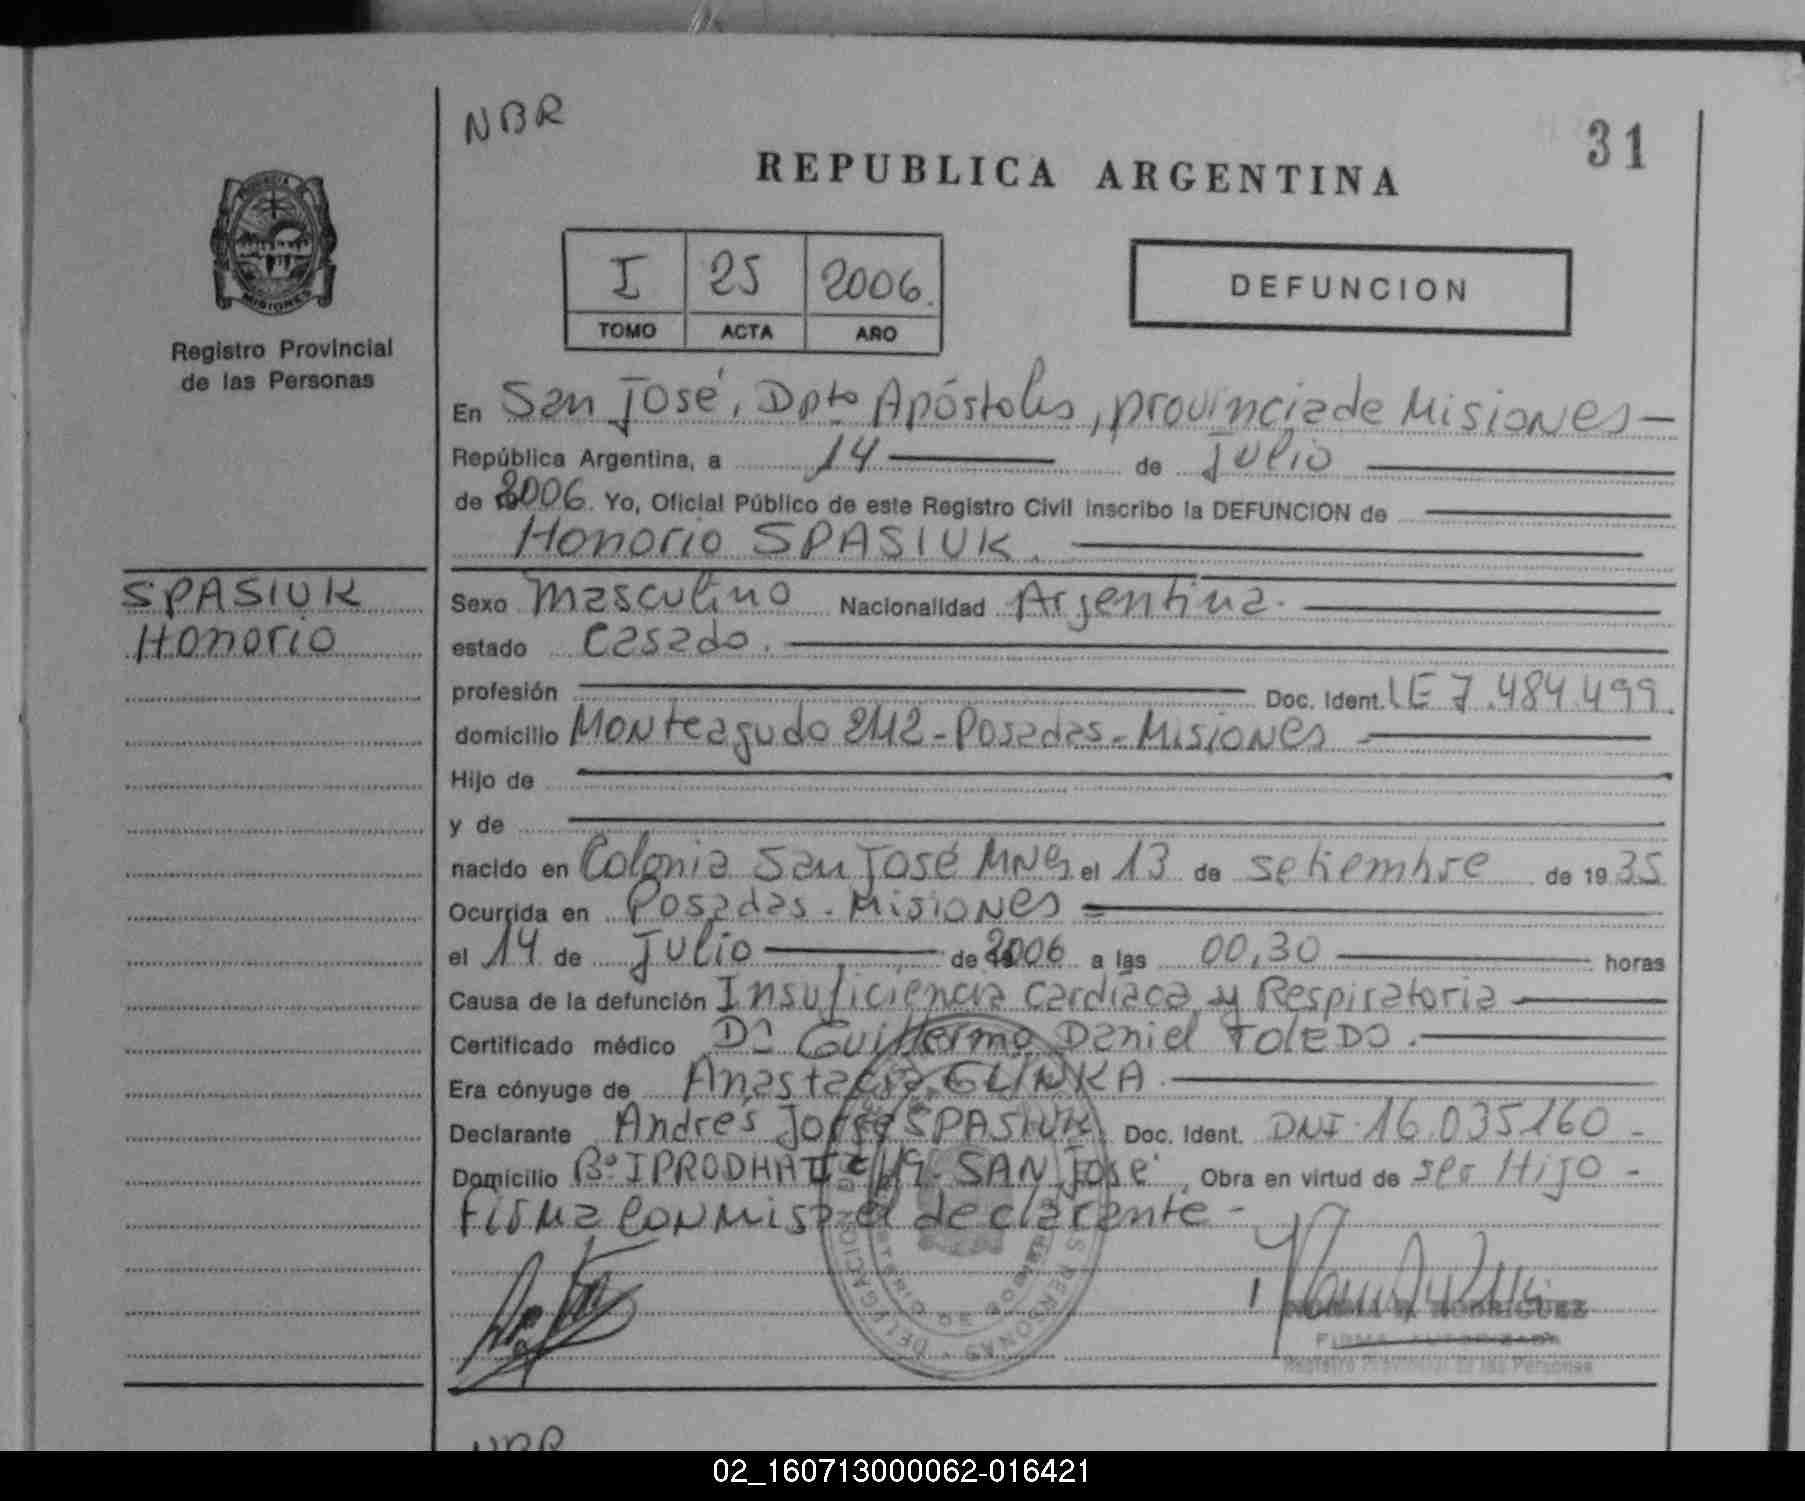 NBR
31
REPUBLICA ARGENTINA
MISIONES
Registro Provincial
de las Personas
I 25 2006.
TOMO ACTA AÑO
DEFUNCION
En San José, Dpto Apóstoles, provincia de Misiones
República Argentina, a 14 de Julio
de 2006. Yo, Oficial Público de este Registro Civil inscribo la DEFUNCION de
Honorio SPASIUK.
SPASIUK
Honorio
Sexo masculino Nacionalidad Argentina.
estado Casado.
profesión Doc. Ident. LE 7.484.499.
domicilio Monteagudo 2112 - Posadas - Misiones
Hijo de
y de
nacido en Colonia San José MNES el 13 de Setiembre de 1935
Ocurrida en Posadas - Misiones
el 14 de Julio de 2006 a las 00,30 horas
Causa de la defunción Insuficiencia Cardiaca y Respiratoria
Certificado médico Dr Guillermo Daniel TOLEDO.
Era cónyuge de Anastacia GLINKA.
Declarante Andrés Jorge SPASIUK Doc. Ident. DNI 16.035160 -
Domicilio Bº IPRODHA 49 - SAN José, Obra en virtud de ser Hijo -
Firma conmigo el declarante -
NORMA B. RODRIGUEZ
FIRMA AUTORIZADA
Registro Provincial de las Personas
NBR
02_160713000062-016421